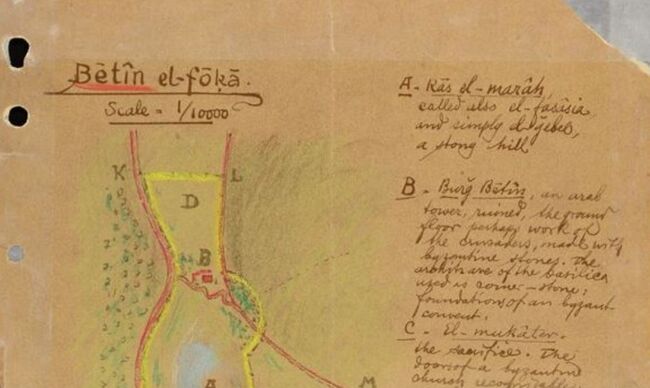 Bētîn el-fōḳā.
Scale = 1/10000
K
L
D
B
A
M
A - Râs el-marâḥ,
called also el-fasîsia,
and simply el-ǧebel,
a stony hill
B - Burǧ Bētîn, an arab
tower, ruined, the ground
floor perhaps work of
the crusaders, made with
byzantine stones. The
architrave of the basilica
used is corner-stone;
foundations of an byzant-
convent.
C - El-mukâter.
the sacrifice. The
doors of a byzantine
church recognizable